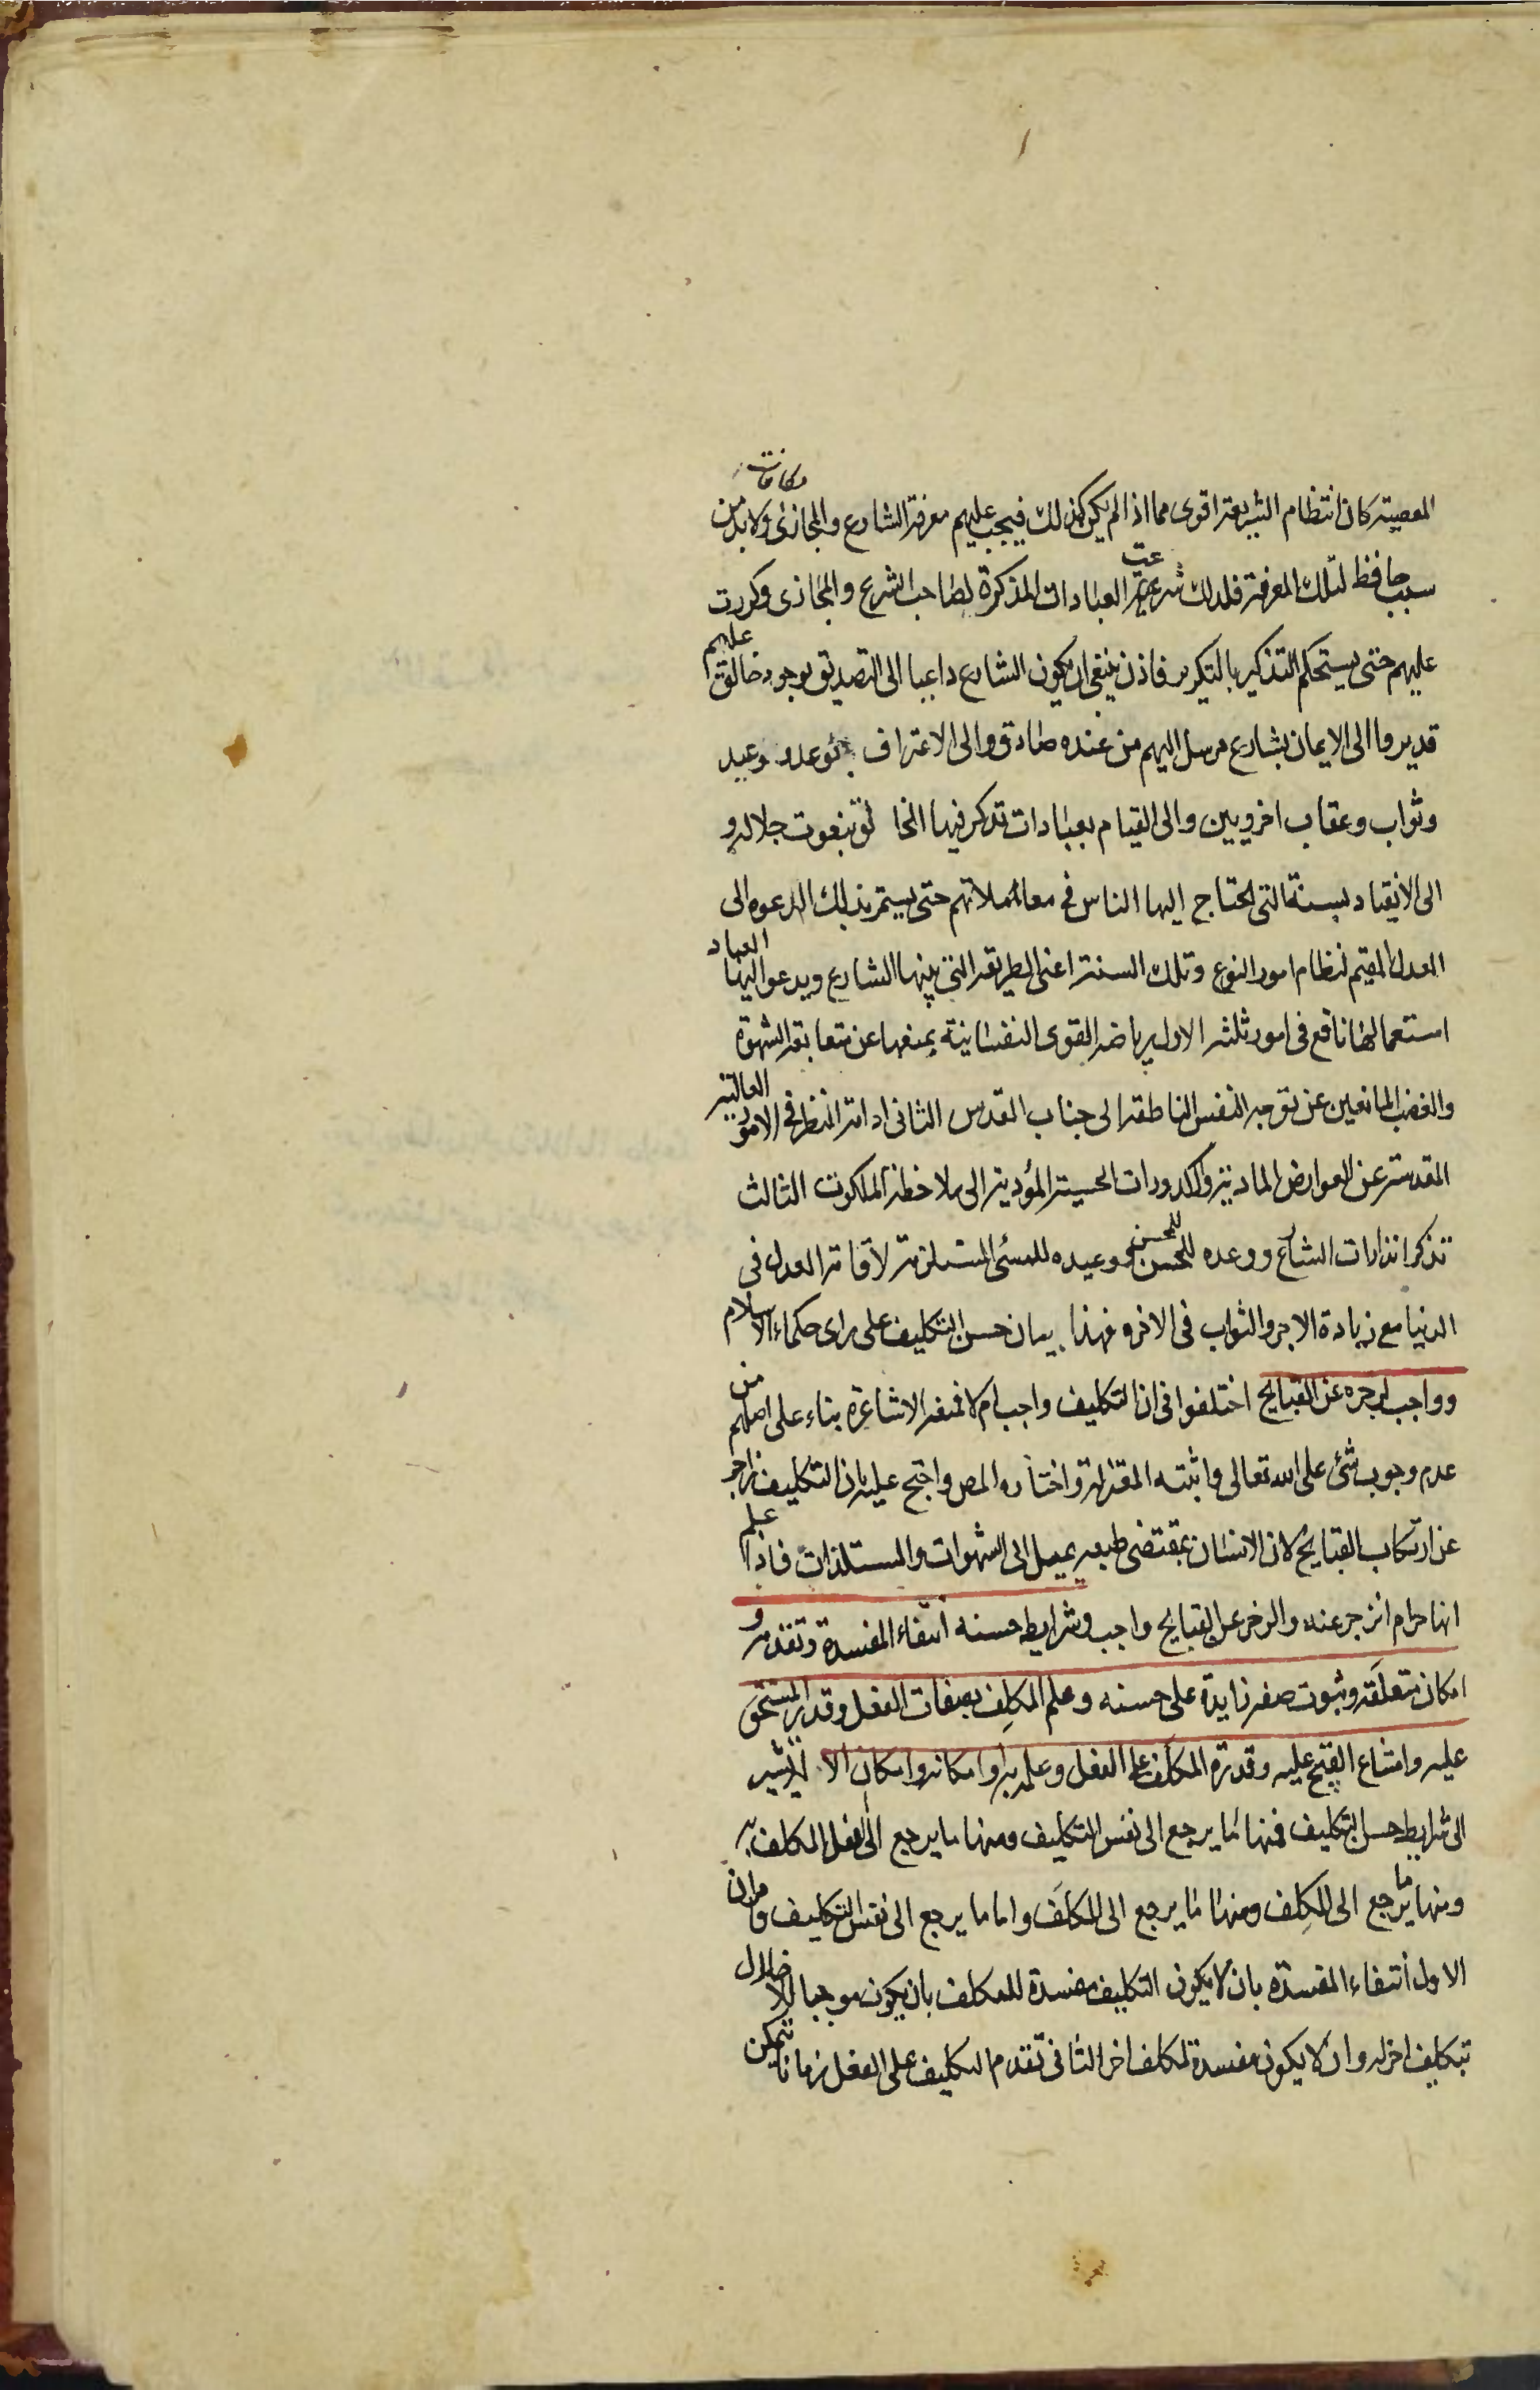 المعصية كان انتظام الشريعة اقوى مما اذا لم يكن كذلك فيجب عليهم معرفة الشارع والمجازى ولابد من
سبب حافظ لتلك المعرفة فلذلك شرعت العبادات المذكرة لصاحب الشرع والمجازى وكررت
عليهم حتى يستحكم التذكير بالتكرير فاذن ينبغى ان يكون الشارع داعيا الى التصديق بوجود خالق عليم
قدير والى الايمان بشارع مرسل اليهم من عنده صادق والى الاعتراف بوعد ووعيد
وثواب وعقاب اخرويين والى القيام بعبادات تذكر فيها الخالق بنعوت جلاله و
الى الانقياد لسنة التى يحتاج اليها الناس فى معاملاتهم حتى يستمر بذلك الدعوه الى
العدل المقيم لنظام امور النوع وتلك السنة اعنى الطريقة التى بينها الشارع ويدعو اليها العباد
استعمالها نافع فى امور ثلثه الاول رياضة القوى النفسانية بمنعها عن متعابقة الشهوة
والغضب المانعين عن توجه النفس الناطقه الى جناب القدس الثانى ادامة النظر فى الامور العالية
المقدسة عن العوارض المادية والكدورات الحسية المؤدية الى ملاحظة الملكوت الثالث
تذكر انذارات الشارع ووعده للمحسن ووعيده للمسئ المستلزمة لاقامة العدل فى
الدنيا مع زيادة الاجر والثواب فى الاخرة فهذا بيان حسن التكليف على راى حكماء الاسلام
وواجب لزجره عن القبايح اختلفوا فى ان التكليف واجب ام لا فمنعه الاشاعرة بناء على اصلهم من
عدم وجوب شئ على الله تعالى واثبته المعتزلة واختاره المص واحتج عليه بان التكليف زاجر
عن ارتكاب القبايح لان الانسان بمقتضى طبعه يميل الى الشهوات والمستلذات فاذا علم
انها حرام انزجر عنه والزجر عن القبايح واجب وشرايط حسنه انتفاء المفسدة وتقدمه و
امكان متعلقه وثبوت صفة زايدة على حسنه وعلم المكلِف بصفات الفعل وقدر المستحق
عليه وامتناع القبيح عليه وقدرة المكلَف على الفعل وعلمه به او امكانه وامكان الالة يشير
الى شرايط حسن التكليف فمنها ما يرجع الى نفس التكليف ومنها ما يرجع الى الفعل المكلف به
ومنها ما يرجع الى المكلِف ومنها ما يرجع الى المكلَف واما ما يرجع الى نفس التكليف فامران
الاول انتفاء المفسدة بان لا يكون التكليف مفسدة للمكلف بان يكون موجبا للاخلال
بتكليف اخر له وان لا يكون مفسدة لمكلف اخر الثانى تقدم التكليف على الفعل زمانا يتمكن